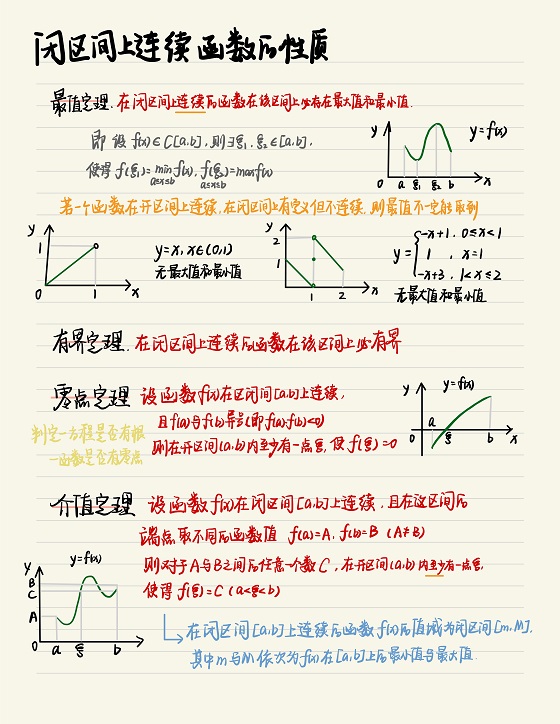 闭区间上连续函数的性质
最值定理. 在闭区间上连续的函数在该区间上必存在最大值和最小值.
即 设 f(x)∈C[a,b], 则∃ξ₁,ξ₂∈[a,b],
使得 f(ξ₁)=min f(x), f(ξ₂)=max f(x)
a≤x≤b a≤x≤b
y y=f(x)
a ξ₁ ξ₂ b x
若一个函数在开区间上连续,在闭区间上有定义但不连续,则最值不一定能取到
y
1
0 1 x
y=x, x∈(0,1)
无最大值和最小值
y
2
1
1 2 x
y={ -x+1, 0≤x<1
1 , x=1
-x+3, 1<x≤2
无最大值和最小值
有界定理. 在闭区间上连续的函数在该区间上必有界
零点定理 设函数f(x)在闭区间[a,b]上连续,
且f(a)与f(b)异号(即f(a)·f(b)<0)
则在开区间(a,b)内至少有一点ξ, 使f(ξ)=0
判定一方程是否有根
一函数是否有零点
y y=f(x)
a
0 ξ b x
介值定理 设函数f(x)在闭区间[a,b]上连续, 且在这区间的
端点取不同的函数值 f(a)=A, f(b)=B (A≠B)
则对于A与B之间的任意一个数C, 在开区间(a,b)内至少有一点ξ,
使得 f(ξ)=C (a<ξ<b)
y y=f(x)
B
C
A
0 a ξ b x
在闭区间[a,b]上连续的函数f(x)的值域为闭区间[m,M].
其中m与M依次为f(x)在[a,b]上的最小值与最大值.